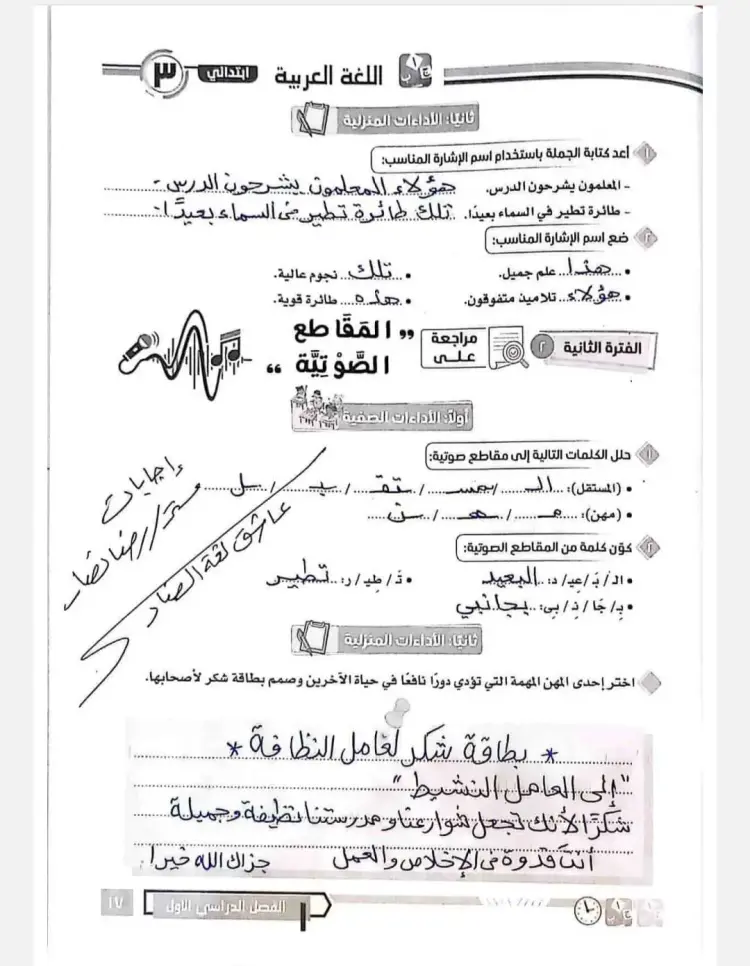 اللغة العربية
ابتدائي ٣
ثانيًا: الأداءات المنزلية
١ أعد كتابة الجملة باستخدام اسم الإشارة المناسب:
- المعلمون يشرحون الدرس. هؤلاء المعلمون يشرحون الدرس.
- طائرة تطير في السماء بعيدًا. تلك طائرة تطير في السماء بعيدًا.
٢ ضع اسم الإشارة المناسب:
• هذا علم جميل. • تلك نجوم عالية.
• هؤلاء تلاميذ متفوقون. • هذه طائرة قوية.
الفترة الثانية ٢ مراجعة على
" المَقَاطع الصَّوْتِيَّة "
أولًا: الأداءات الصفية
١ حلل الكلمات التالية إلى مقاطع صوتية:
• (المستقل): الـ / مسـ / تقـ / يـ / ل
• (مهن): مـ / هـ / ن
إجابات
عاشق لغة الضاد
٢ كوّن كلمة من المقاطع الصوتية:
• الـ / بَـ / عيـ / د: البعيد • تَـ / طيـ / ر: تطير
• بِـ / جَا / نِـ / بي: بجانبي
ثانيًا: الأداءات المنزلية
اختر إحدى المهن المهمة التي تؤدي دورًا نافعًا في حياة الآخرين وصمم بطاقة شكر لأصحابها.
* بطاقة شكر لعامل النظافة *
"إلى العامل النشيط"
شكرًا لأنك تجعل شوارعنا ومدرستنا نظيفة وجميلة
أنت قدوة في الإخلاص والعمل جزاك الله خيرا.
الفصل الدراسي الأول
١٧